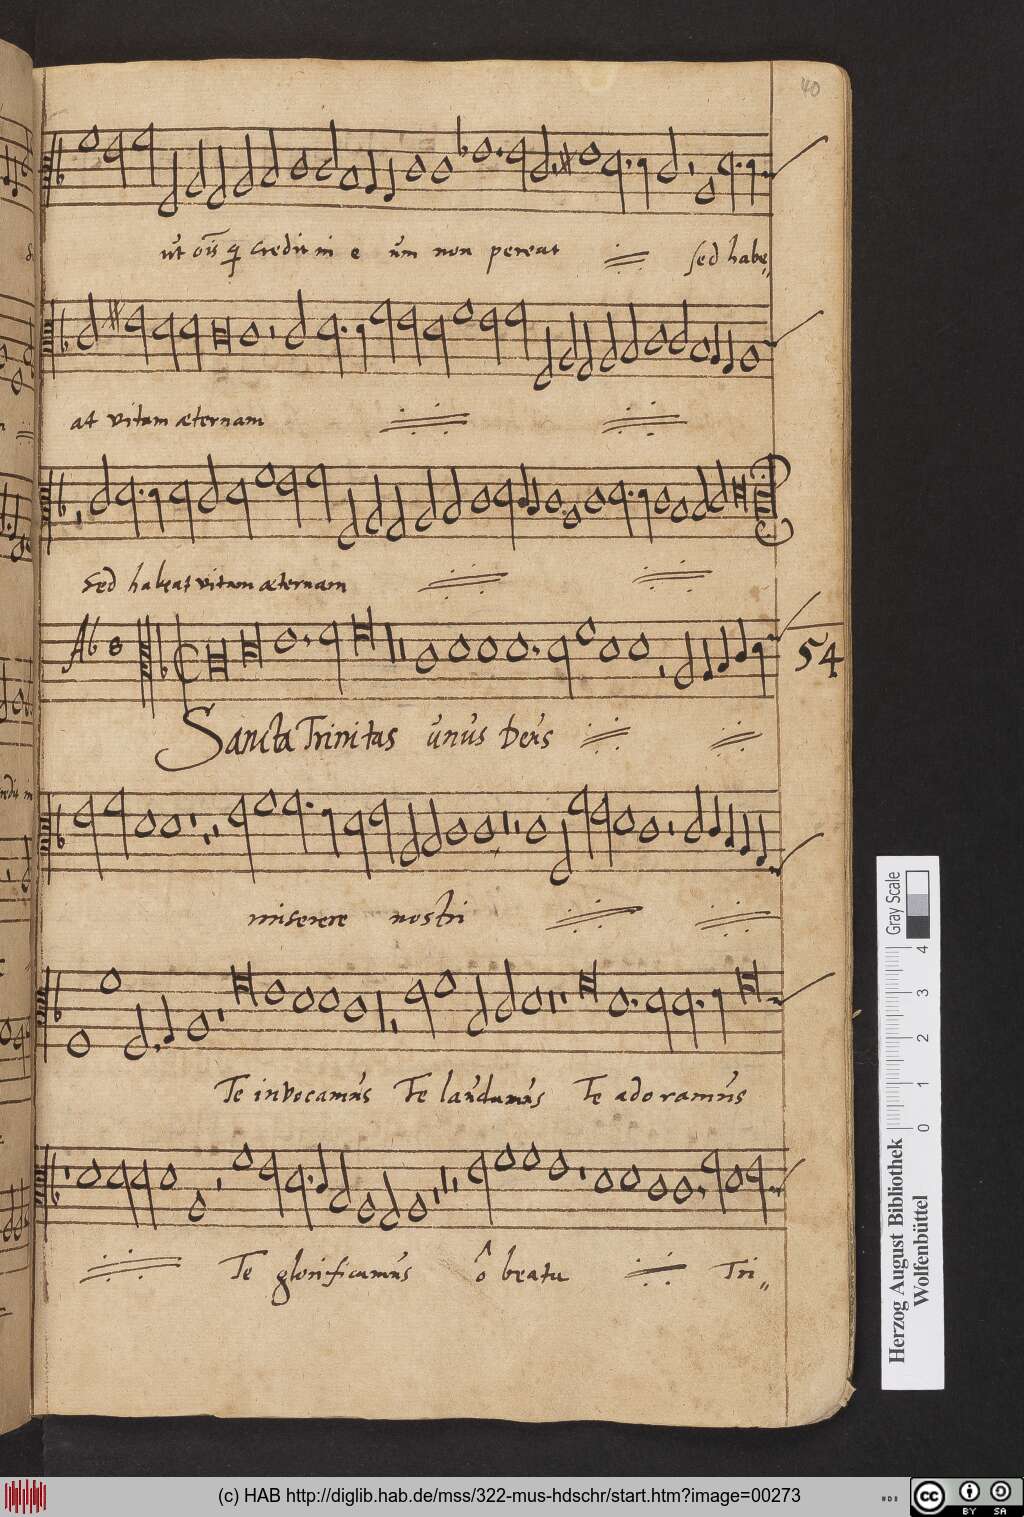 40
ut oīs q credit in e um non pereat sed habe„
at vitam æternam
Sed habeat vitam æternam
Ab 8
54
Sancta Trinitas unus Deus
miserere nostri
Te invocamus Te laudamus Te adoramus
Te glorificamus ô beata Tri„
Gray Scale
0 1 2 3 4
Herzog August Bibliothek
Wolfenbüttel
(c) HAB http://diglib.hab.de/mss/322-mus-hdschr/start.htm?image=00273
cc BY SA